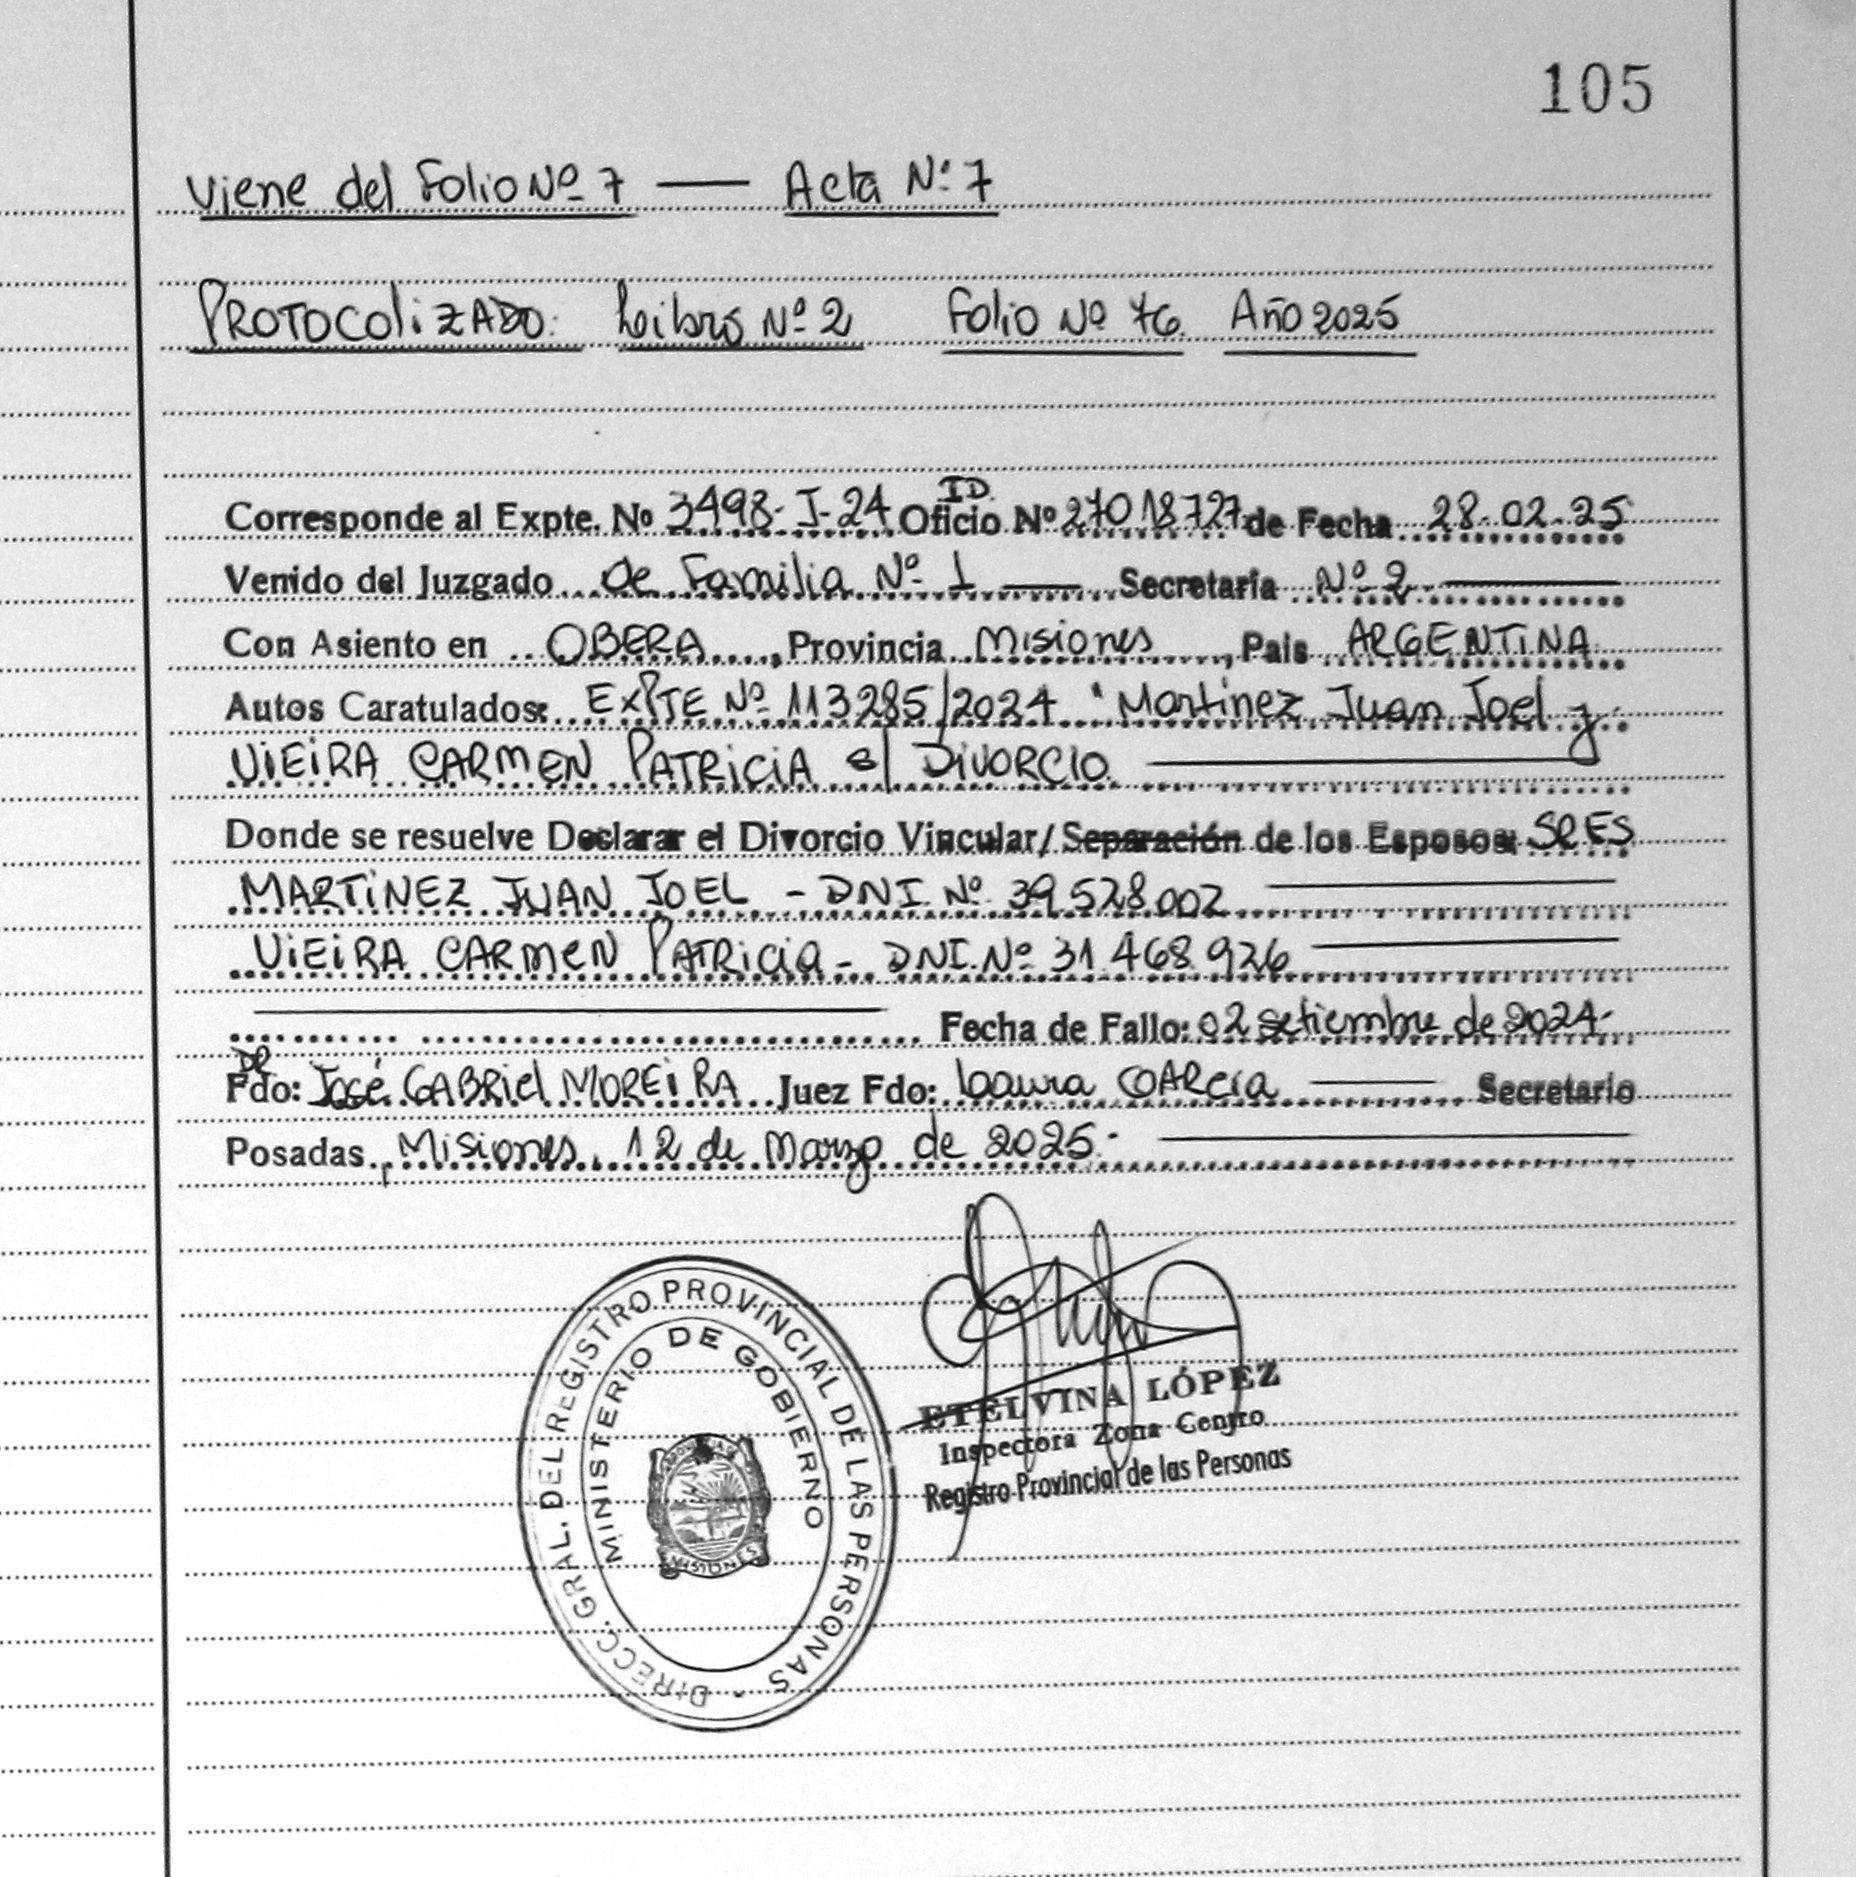 105
Viene del Folio Nº 7 — Acta Nº 7
PROTOCOLIZADO: Libro Nº 2 Folio Nº 76 Año 2025
ID.
Corresponde al Expte. Nº 3498-I-24 Oficio Nº 27018727 de Fecha 28-02-25
Venido del Juzgado de Familia Nº 1 — Secretaría Nº 2
Con Asiento en OBERA, Provincia Misiones, País ARGENTINA
Autos Caratulados: EXPTE Nº 113285/2024 "Martinez Juan Joel y
VIEIRA CARMEN PATRICIA s/ DIVORCIO
Donde se resuelve Declarar el Divorcio Vincular/Separación de los Esposos: SRES
MARTINEZ JUAN JOEL - DNI. Nº 39.528.002
VIEIRA CARMEN PATRICIA - DNI. Nº 31.468.926
Fecha de Fallo: 02 setiembre de 2024-
DR
Fdo: José GABRIEL MOREIRA Juez Fdo: Laura Secretario
Posadas, Misiones, 12 de Marzo de 2025-
DIRECC. GRAL. DEL REGISTRO PROVINCIAL DE LAS PERSONAS
MINISTERIO DE GOBIERNO
MISIONES
ETELVINA LÓPEZ
Inspectora Zona Centro
Registro Provincial de las Personas